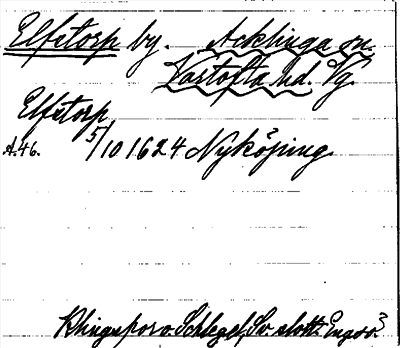 Elfstorp by. Acklinga sn.
Vartofta hd. Vg.
Elfstorp
A.46. 5/10 1624 Nyköping
Klingspor o. Schlegel, Sv. slott: Engsö.